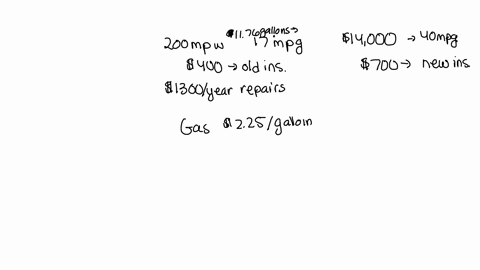 $11.76gallons→
200mpw 17 mpg
$400 → old ins.
$1300/year repairs
Gas $2.25/gallon
$14,000 → 40mpg
$700 → new ins